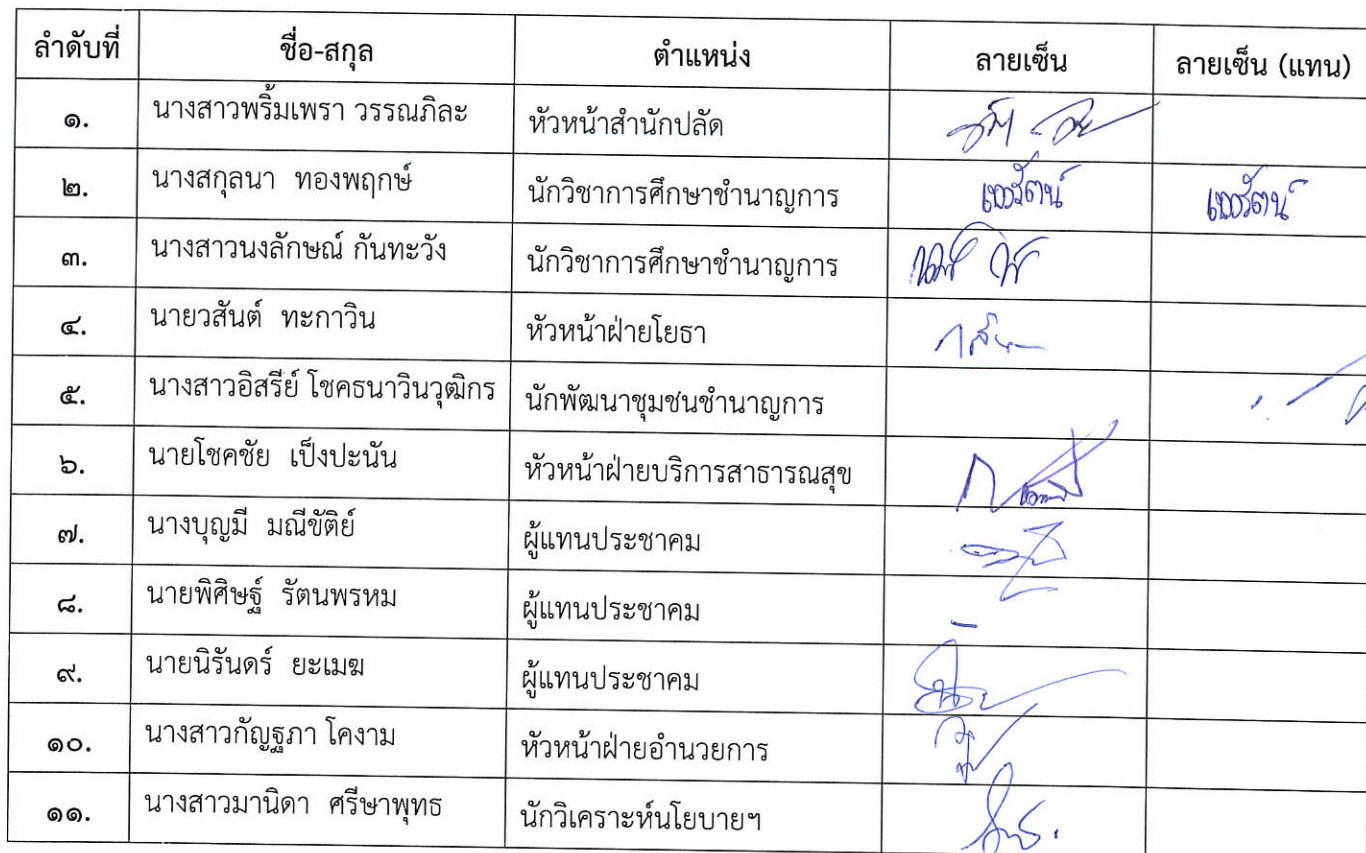 ลำดับที่ ชื่อ-สกุล ตำแหน่ง ลายเซ็น ลายเซ็น (แทน)
๑. นางสาวพริ้มเพรา วรรณภิละ หัวหน้าสำนักปลัด
๒. นางสกุลนา ทองพฤกษ์ นักวิชาการศึกษาชำนาญการ
๓. นางสาวนงลักษณ์ กันทะวัง นักวิชาการศึกษาชำนาญการ
๔. นายวสันต์ ทะกาวิน หัวหน้าฝ่ายโยธา
๕. นางสาวอิสรีย์ โชคธนาวินวุฒิกร นักพัฒนาชุมชนชำนาญการ
๖. นายโชคชัย เป็งปะนัน หัวหน้าฝ่ายบริการสาธารณสุข
๗. นางบุญมี มณีขัติย์ ผู้แทนประชาคม
๘. นายพิศิษฐ์ รัตนพรหม ผู้แทนประชาคม
๙. นายนิรันดร์ ยะเมฆ ผู้แทนประชาคม
๑๐. นางสาวกัญฐภา โคงาม หัวหน้าฝ่ายอำนวยการ
๑๑. นางสาวมานิดา ศรีษาพุทธ นักวิเคราะห์นโยบายฯ